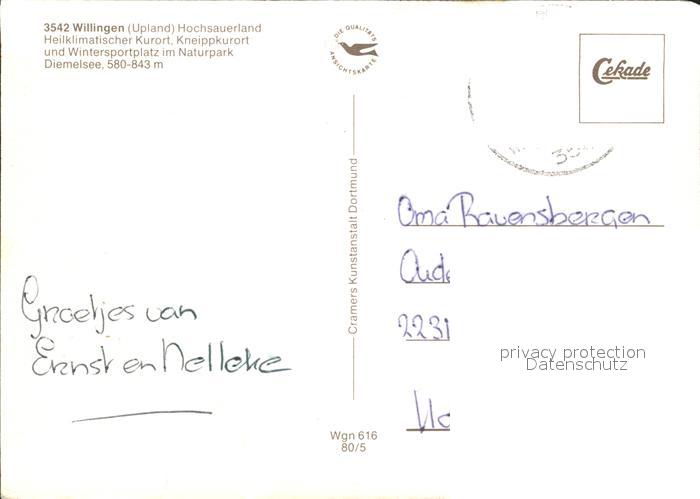 3542 Willingen (Upland) Hochsauerland
Heilklimatischer Kurort, Kneippkurort
und Wintersportplatz im Naturpark
Diemelsee, 580-843 m
DIE QUALITÄTS
ANSICHTSKARTE
Cekade
Cramers Kunstanstalt Dortmund
Oma Ravensbergen
2231
privacy protection
Datenschutz
Groetjes van
Ernst en Nelleke
Wgn 616
80/5